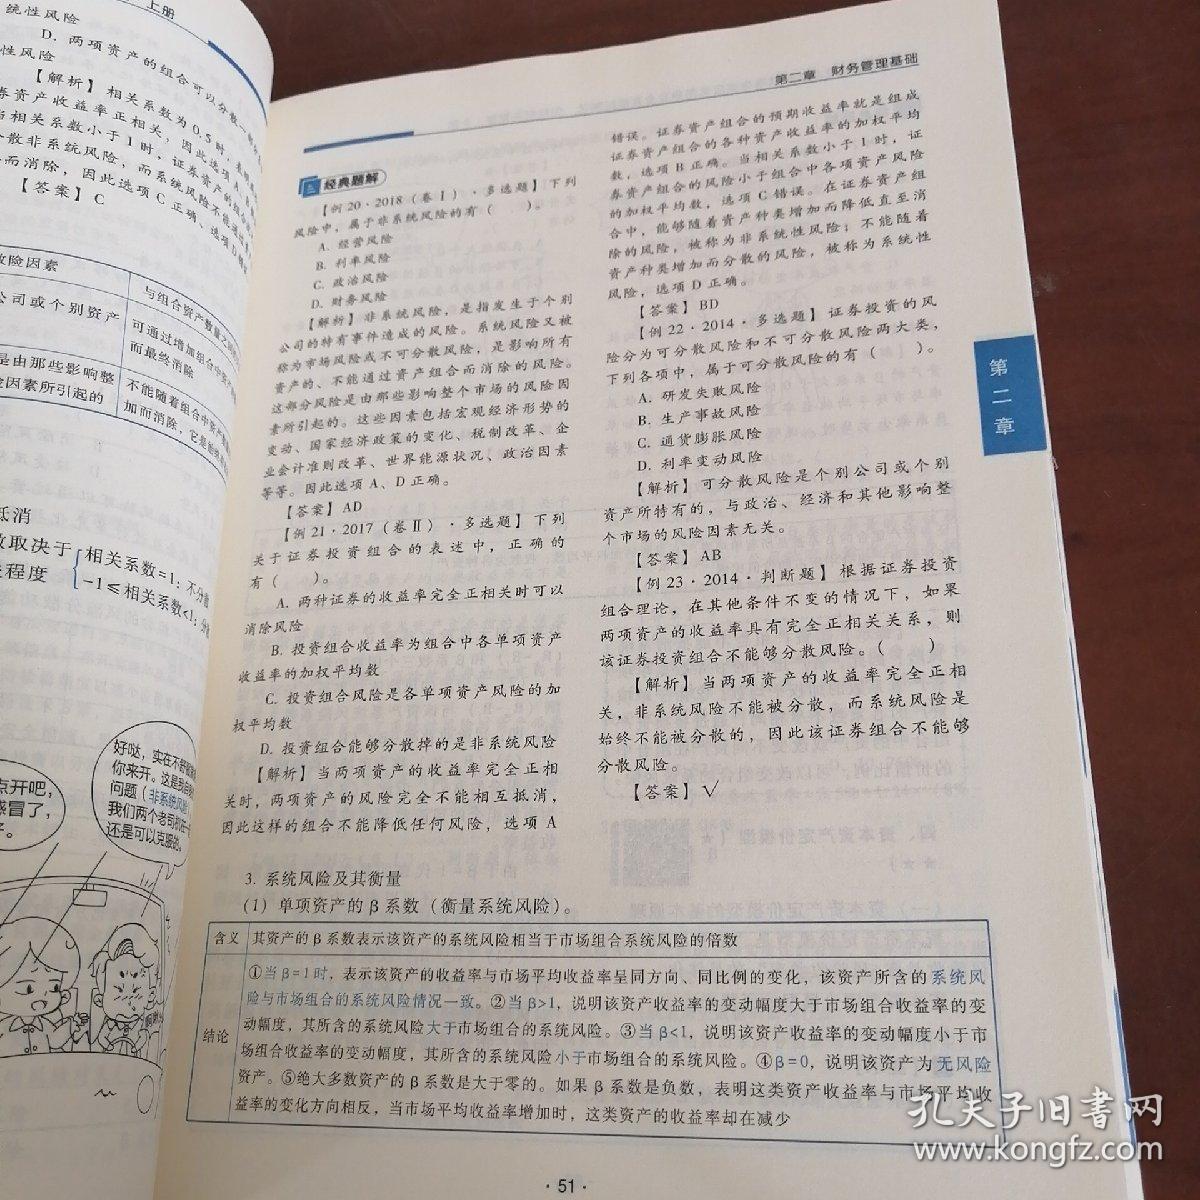 上册
统性风险
D. 两项资产的组合可以分散一部分
性风险
【解析】相关系数为0.5时，
券资产收益率正相关，因此选项A
当相关系数小于1时，证券资产的
分散非系统风险，而系统风险不能
而消除，因此选项C正确、选项D
【答案】C
险因素
与组合资产数量之间
公司或个别资产
可通过增加组合中资产
而最终消除
是由那些影响整
险因素所引起的
不能随着组合中资产
加而消除，它是
抵消
取决于
程度
相关系数=1：不分散
-1≤相关系数<1：分散
好哒，实在不
你来开。这是
问题（非系统风险
我们两个老司机
还是可以克服的。
点开吧，
感冒了，
第二章 财务管理基础
经典题解
【例20·2018（卷Ⅰ）·多选题】下列
风险中，属于非系统风险的有（ ）。
A. 经营风险
B. 利率风险
C. 政治风险
D. 财务风险
【解析】非系统风险，是指发生于个别
公司的特有事件造成的风险。系统风险又被
称为市场风险或不可分散风险，是影响所有
资产的、不能通过资产组合而消除的风险。
这部分风险是由那些影响整个市场的风险因
素所引起的。这些因素包括宏观经济形势的
变动、国家经济政策的变化、税制改革、企
业会计准则改革、世界能源状况、政治因素
等等。因此选项A、D正确。
【答案】AD
【例21·2017（卷Ⅱ）·多选题】下列
关于证券投资组合的表述中，正确的
有（ ）。
A. 两种证券的收益率完全正相关时可以
消除风险
B. 投资组合收益率为组合中各单项资产
收益率的加权平均数
C. 投资组合风险是各单项资产风险的加
权平均数
D. 投资组合能够分散掉的是非系统风险
【解析】当两项资产的收益率完全正相
关时，两项资产的风险完全不能相互抵消，
因此这样的组合不能降低任何风险，选项A
错误。证券资产组合的预期收益率就是组成
证券资产组合的各种资产收益率的加权平均
数，选项B正确。当相关系数小于1时，证
券资产组合的风险小于组合中各项资产风险
的加权平均数，选项C错误。在证券资产组
合中，能够随着资产种类增加而降低直至消
除的风险，被称为非系统性风险；不能随着
资产种类增加而分散的风险，被称为系统性
风险，选项D正确。
【答案】BD
【例22·2014·多选题】证券投资的风
险分为可分散风险和不可分散风险两大类，
下列各项中，属于可分散风险的有（ ）。
A. 研发失败风险
B. 生产事故风险
C. 通货膨胀风险
D. 利率变动风险
【解析】可分散风险是个别公司或个别
资产所特有的，与政治、经济和其他影响整
个市场的风险因素无关。
【答案】AB
【例23·2014·判断题】根据证券投资
组合理论，在其他条件不变的情况下，如果
两项资产的收益率具有完全正相关关系，则
该证券投资组合不能够分散风险。（ ）
【解析】当两项资产的收益率完全正相
关，非系统风险不能被分散，而系统风险是
始终不能被分散的，因此该证券组合不能够
分散风险。
【答案】√
第二章
3. 系统风险及其衡量
（1）单项资产的β系数（衡量系统风险）。
含义 其资产的β系数表示该资产的系统风险相当于市场组合系统风险的倍数
①当β=1时，表示该资产的收益率与市场平均收益率呈同方向、同比例的变化，该资产所含的系统风
险与市场组合的系统风险情况一致。②当β>1，说明该资产收益率的变动幅度大于市场组合收益率的变
动幅度，其所含的系统风险大于市场组合的系统风险。③当β<1，说明该资产收益率的变动幅度小于市
结论
场组合收益率的变动幅度，其所含的系统风险小于市场组合的系统风险。④β=0，说明该资产为无风险
资产。⑤绝大多数资产的β系数是大于零的。如果β系数是负数，表明这类资产收益率与市场平均收
益率的变化方向相反，当市场平均收益率增加时，这类资产的收益率却在减少
·51·
孔夫子旧书网
www.kongfz.com